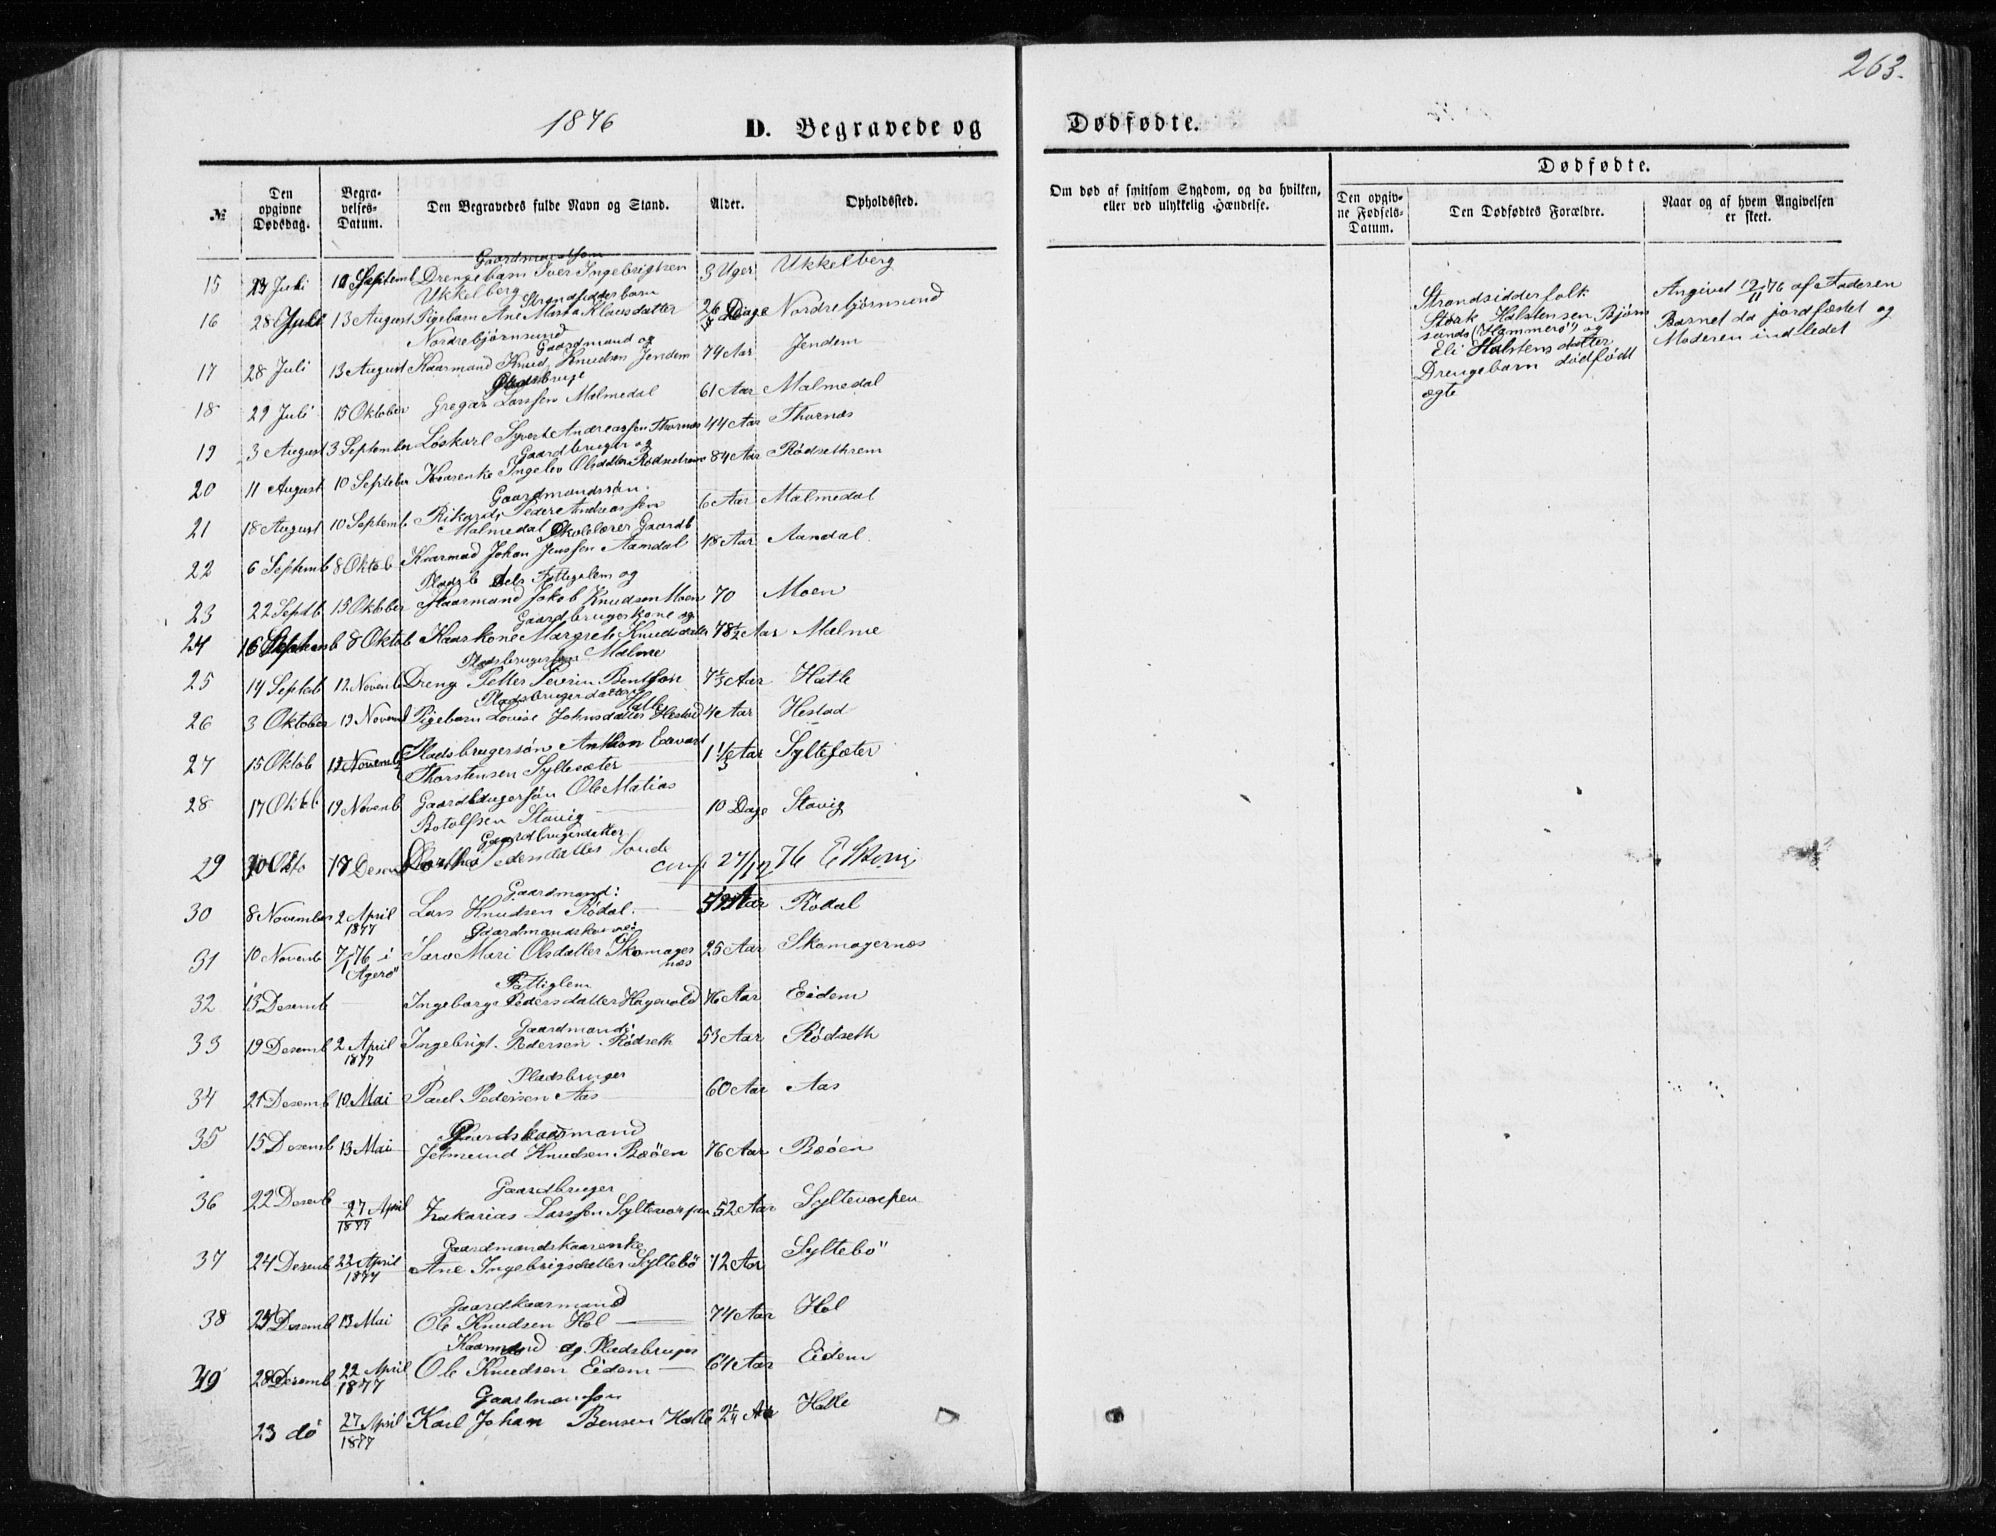 263.
1876
D. Begravede og
Dødfødte.
Dødfødte.
№
Den opgivne Dødsdag.
Begra-velses-Datum.
Den Begravedes fulde Navn og Stand.
Alder.
Opholdssted.
Om død af smitsom Sygdom, og da hvilken, eller ved ulykkelig Hændelse.
Den opgiv-ne Fødsels-Datum.
Den Dødfødtes Forældre.
Naar og af hvem Angivelsen er skeet.
Gaardmandssøn
15 Juli 10 Septemb Drengebarn Iver Ingebrigtsen 3 Uger Ukkelberg
Ukkelberg Strandsidderbarn
16 28 Juli 13 August Pigebarn Ane Marta Klausdatter 26 Dage Nordrebjørnsund
Nordrebjørnsund
Gaardmand og
17 28 Juli 13 August Kaarmand Knud Knudsen Jendem 74 Aar Jendem
Pladsbruge
18 29 Juli 15 Oktober Gregar Larssen Malmedal 61 Aar Malmedal
19 3 August 3 September Løskarl Syvert Andreassen Thornæs 44 Aar Thornæs
Gaardbruger og
20 11 August 10 Septeber Kaarenke Ingelev Olsdatter Rødsethrem 84 Aar Rødsethrem
Gaardmandssøn.
21 18 August 10 Septemb Rikard Peder Andreassen 6 Aar Malmedal
Malmedal Skolelærer Gaardb
22 6 Septemb 8 Oktob Kaarmad Johan Jenssen Aamdal 48 Aar Aandal.
Pladsb dels Fattigslem og
23 22 Septb 15 Oktober Kaarmand Jakob Knudsen Moen 70 Moen
Gaardbrugerskone og
24 16 Septemb 8 Oktob Kaarkone Margrete Knudsdatter 78 1/2 Aar Malme
Pladsbrugersøn Malme
25 14 Septeb 12 Novenb Dreng Petter Severin Bentssøn 7 1/3 Aar Hatle
Pladsbrugerdatter Hatle
26 3 Oktober 19 Novenb Pigebarn Lovise Johnsdatter Hestad 4 Aar Hestad
27 15 Oktob 12 Novemb Pladsbrugersøn Anthon Edvart 1 1/3 Aar Syltesæter
Thorstensen Syltesæter
28 17 Oktb 19 Novenb Gaardbrugersøn Ole Matias 10 Dage Stavig
Botolfsen Stavig
Gaardbrugerdatter
29 30 Okto 17 Desemb Dorthe Pedersdatter Sonde
conf 27/12 76
Gaardmand:
30 8 November 2 April 1877 Lars Knudsen Rødal Aar Rødal
Gaardmandskone:
31 10 Novenb 7/1 76 i Agerø Sara Mari Olsdatter Skomager 25 Aar Skomagernæs
næs
Fattiglem
32 13 Desemb Ingeborg Pedersdatter Hagevold 46 Aar Eidem
Gaardmand:
33 19 Desemb 2 April 1877 Ingebrigt Pedersen Rødseth 53 Aar Rødseth
Pladsbruger
34 21 Desemb 10 Mai Paul Pedersen Aas 60 Aar Aas
Gaardskaarmand
35 15 Desemb 13 Mai Jetmund Knudsen Bæøen 76 Aar Bæøen
Gaardbruger
36 22 Desenb 27 April 1877 Zakarias Larssen Syltevorpen 52 Aar Syltevorpen
Gaardmandskaarenke
37 24 Desenb 22 April 1877 Ane Ingebrigsdatter Syltebö 72 Aar Syltebö
Gaardkaarmand
38 25 Desemb 13 Mai Ole Knudsen Hol 74 Aar Hol
Kaarmand og Pladsbruger
39 28 Desemb 22 April 1877 Ole Knudsen Eidem 64 Aar Eidem
Gaardmanssøn
23 dó 27 April 1877 Karl Johan Bensen Hatle 2 1/4 Aar Hatle
Strandsidderfolk
Størk Halstensen Bjørn
sunds (Hammerö) og
Eli Halstensdatter
Drengebarn dødfødt
ægte
Angivet 12/11 76 af Faderen
Barnet da jordfæstet og
Moderen indledet